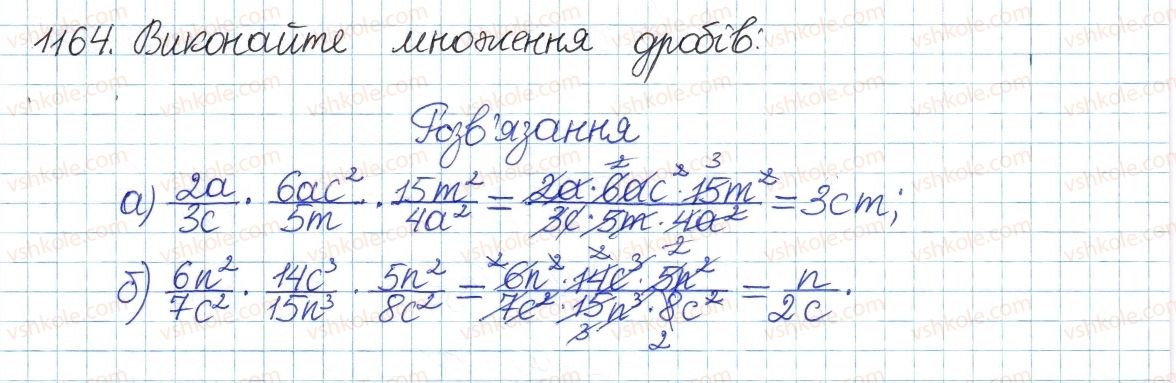 1164. Виконайте множення дробів:
Розв'язання
а) 2a/3c · 6ac²/5m · 15m²/4a² = 2a·6ac²·15m²/3c·5m·4a² = 3cm;
б) 6n²/7c² · 14c³/15n³ · 5n²/8c² = 6n²·14c³·5n²/7c²·15n³·8c² = n/2c.